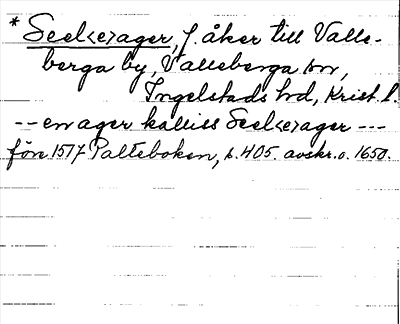 * Seel<e>ager, f. åker till Valle-
berga by, Valleberga sn,
Ingelstads hd, Krist. l.
-- en ager kalliss Seel<e>ager ---
före 1517 Palteboken, s. 405. avskr. o. 1650.